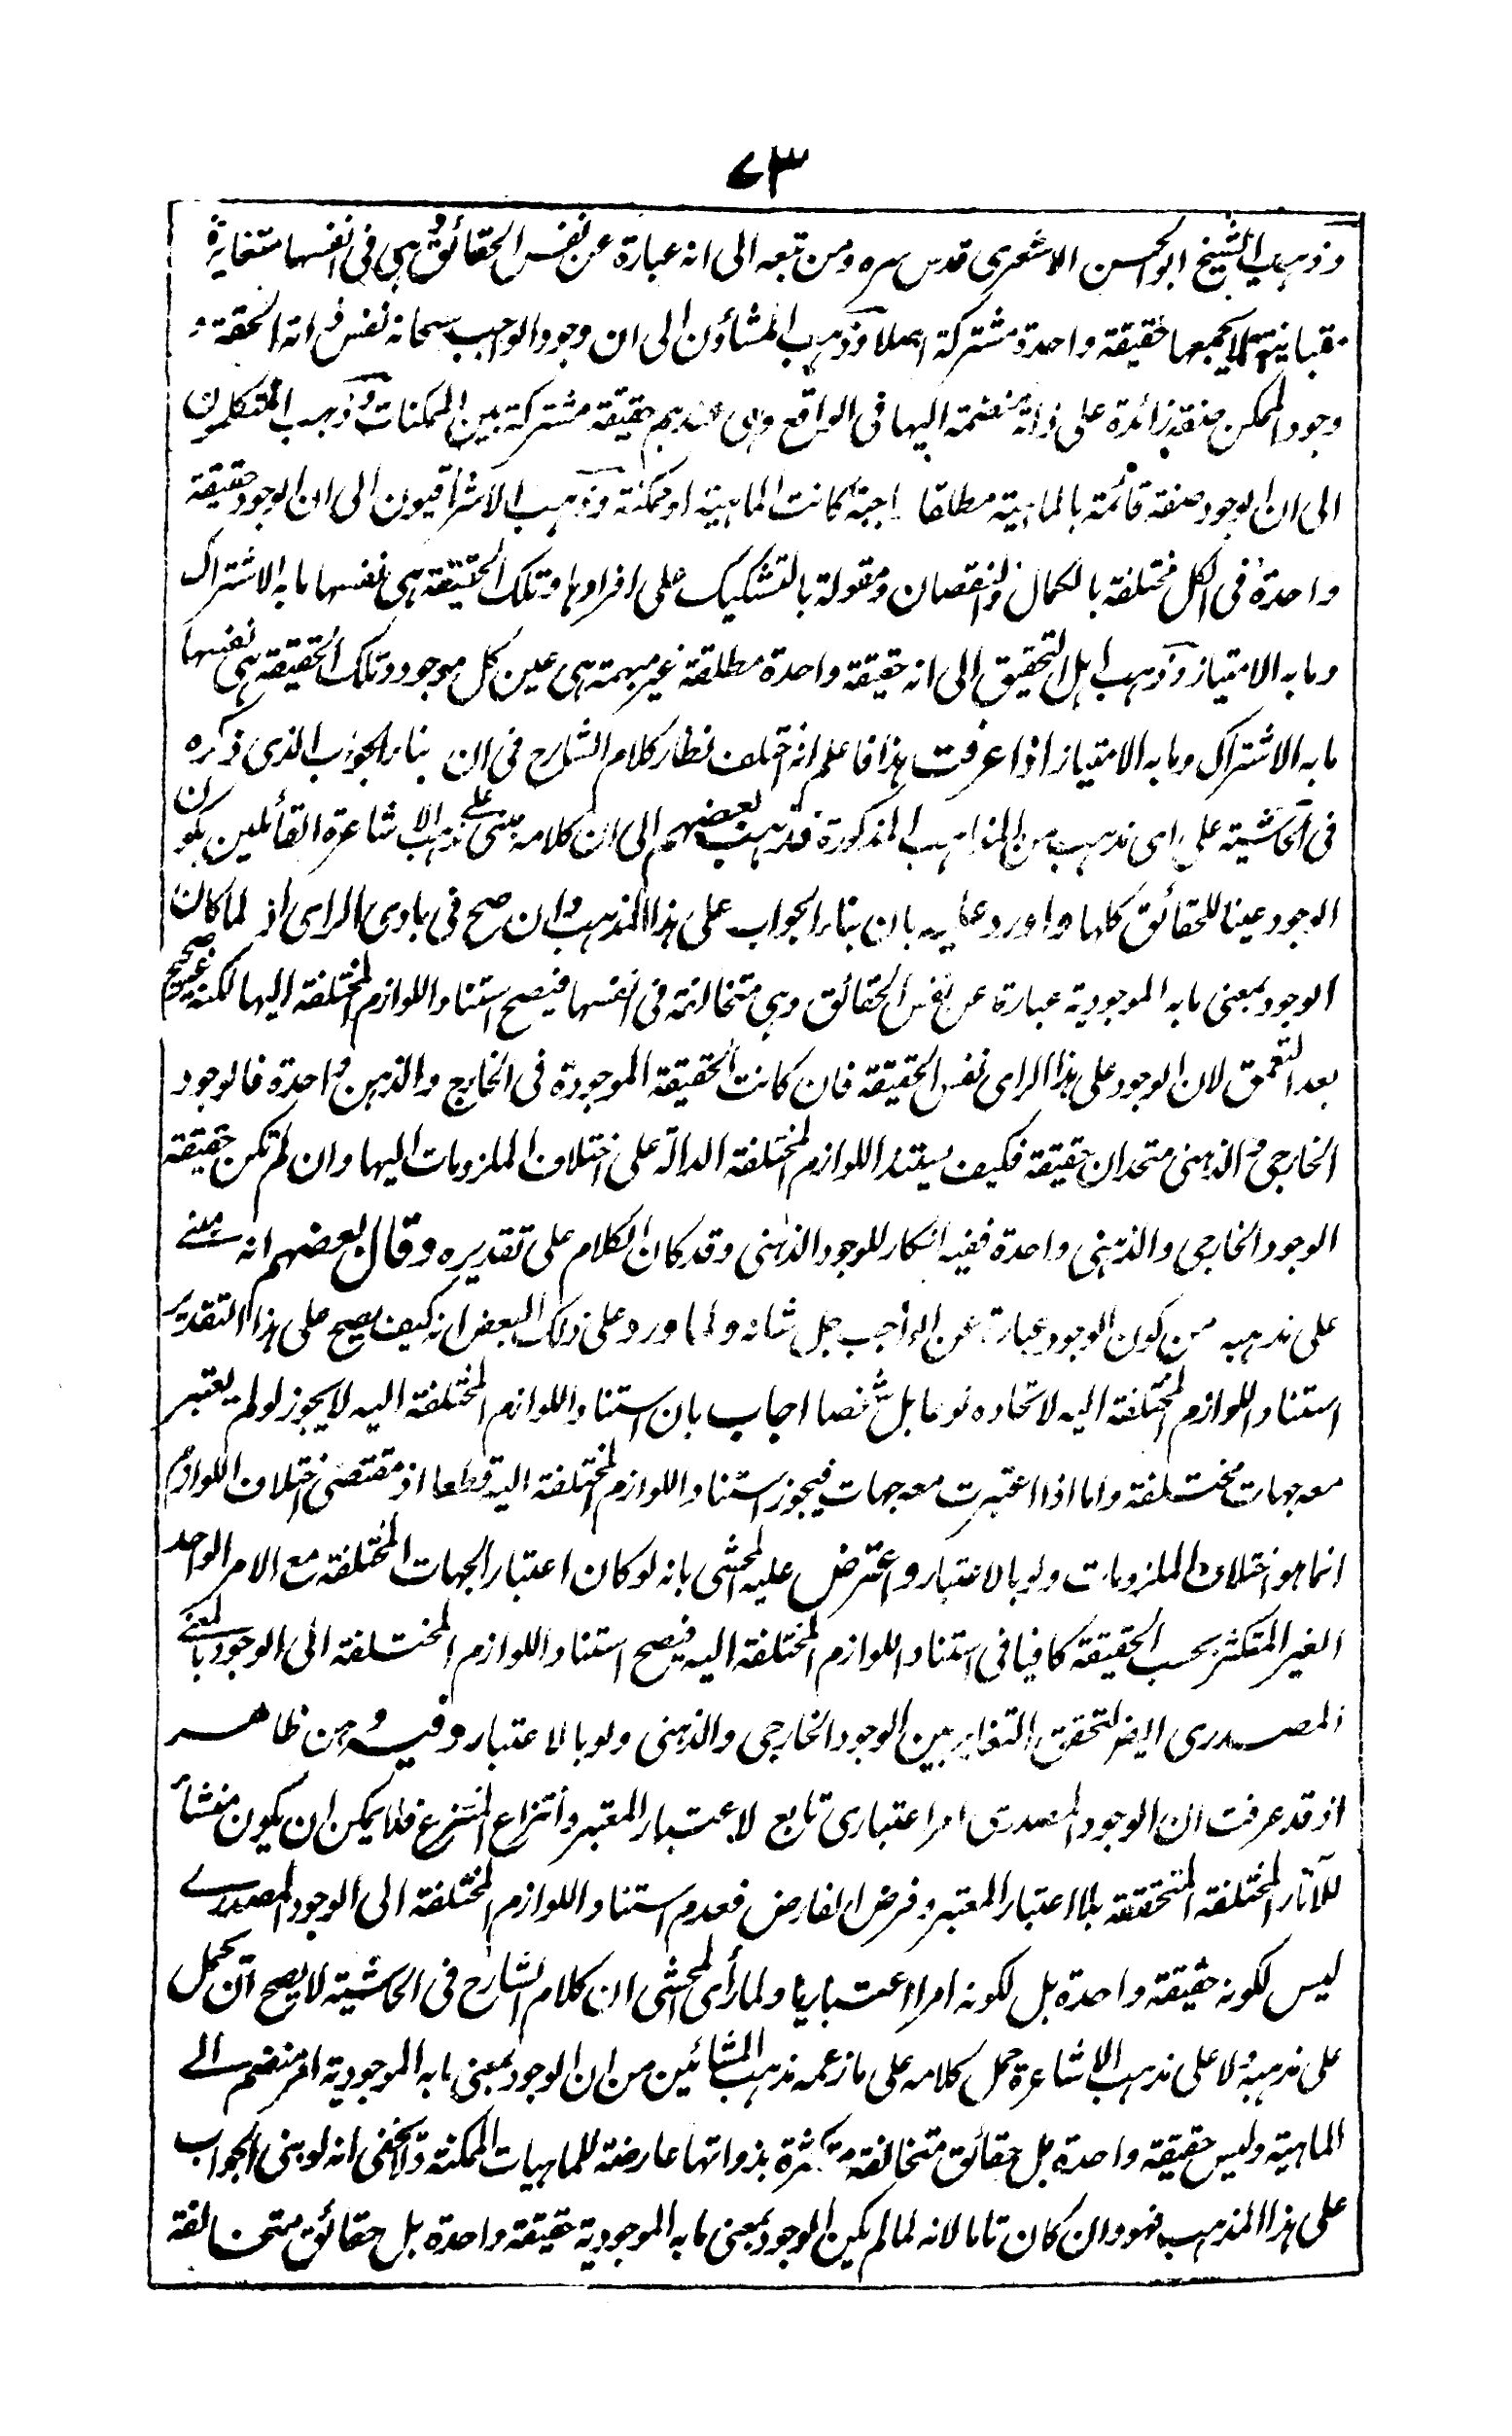 ٧٣
وذهب الشيخ ابو الحسن الاشعرى قدس سره ومن تبعه الى انه عبارة عن نفس الحقائق وهى فى انفسها متغايرة
متباينة لا يجمعها حقيقة واحدة مشتركة اصلا وذهب المشاؤن الى ان وجود الواجب سبحانه نفس ذاته الحقة و
وجود الممكن صفة زائدة على ذاته منضمة اليها فى الواقع وهى عندهم حقيقة مشتركة بين الممكنات وذهب المتكلمون
الى ان الوجود صفة قائمة بالماهية مطلقا واجبة كانت الماهية او ممكنة وذهب الاشراقيون الى ان الوجود حقيقة
واحدة فى الكل مختلفة بالكمال والنقصان ومقولة بالتشكيك على افرادها وتلك الحقيقة هى نفسها ما به الاشتراك
وما به الامتياز وذهب اهل التحقيق الى انه حقيقة واحدة مطلقة غير مبهمة هى عين كل موجود وتلك الحقيقة هى نفسها
ما به الاشتراك وما به الامتياز اذا عرفت هذا فاعلم انه اختلف نظار كلام الشارح فى ان بناء الجواب الذى ذكره
فى الحاشية على اى مذهب من المذاهب المذكورة فذهب بعضهم الى ان كلامه مبنى على مذهب الاشاعرة القائلين بكون
الوجود عينا للحقائق كلها واورد عليه بان بناء الجواب على هذا المذهب وان صح فى بادى الراى اذ لما كان
الوجود بمعنى ما به الموجودية عبارة عن نفس الحقائق وهى متخالفة فى انفسها فيصح استناد اللوازم المختلفة اليها لكنه غير صحيح
بعد التعمق لان الوجود على هذا الراى نفس الحقيقة فان كانت الحقيقة الموجودة فى الخارج والذهن واحدة فالوجود
الخارجى والذهنى متحدان حقيقة فكيف يستند اللوازم المختلفة الدالة على اختلاف الملزومات اليها وان لم تكن حقيقة
الوجود الخارجى والذهنى واحدة ففيه انكار للوجود الذهنى وقد كان الكلام على تقديره وقال بعضهم انه مبنى
على مذهبه من كون الوجود عبارة عن الواجب جل شانه ولما ورد على ذلك البعض انه كيف يصح على هذا التقدير
استناد اللوازم المختلفة اليه لاتحاده نوعا بل شخصا اجاب بان استناد اللوازم المختلفة اليه لا يجوز لو لم يعتبر
معه جهات مختلفة واما اذا اعتبرت معه جهات فيجوز استناد اللوازم المختلفة اليه قطعا اذ مقتضى اختلاف اللوازم
انما هو اختلاف الملزومات ولو بالاعتبار واعترض عليه المحشى بانه لو كان اعتبار الجهات المختلفة مع الامر الواحد
الغير المتكثر بحسب الحقيقة كافيا فى استناد اللوازم المختلفة اليه فيصح استناد اللوازم المختلفة الى الوجود بالمعنى
المصدرى ايضا لتحقق التغاير بين الوجود الخارجى والذهنى ولو بالاعتبار وفيه وهن ظاهر
اذ قد عرفت ان الوجود المصدرى امر اعتبارى تابع لاعتبار المعتبر وانتزاع المنتزع فلا يمكن ان يكون منشأ
للآثار المختلفة المتحققة بلا اعتبار المعتبر وفرض الفارض فعدم استناد اللوازم المختلفة الى الوجود المصدرى
ليس لكونه حقيقة واحدة بل لكونه امرا اعتباريا ولما رأى المحشى ان كلام الشارح فى الحاشية لا يصح ان يحمل
على مذهبه ولا على مذهب الاشاعرة حمل كلامه على ما زعمه مذهب المشائين من ان الوجود بمعنى ما به الموجودية امر منضم الى
الماهية وليس حقيقة واحدة بل حقائق متخالفة متكثرة بذواتها عارضة للماهيات الممكنة ولا يخفى انه لو بنى الجواب
على هذا المذهب فهو وان كان تاما لانه لما لم يكن الوجود بمعنى ما به الموجودية حقيقة واحدة بل حقائق متخالفة